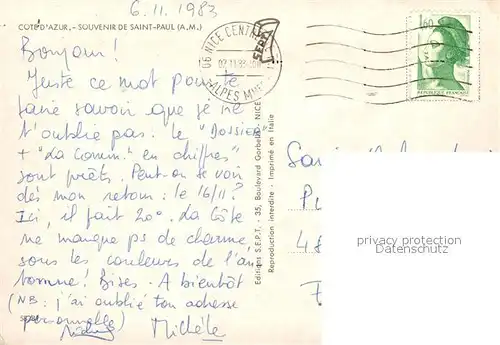 6.11.1983
CÔTE D'AZUR. - SOUVENIR DE SAINT-PAUL (A.M.)
Bonjour!
Juste ce mot pour te
faire savoir que je ne
t'oublie pas. Le "Dossier"
+ "La Comm. en chiffres"
sont prêts. Peut-on se voir
dès mon retour: le 16/11?
Ici, il fait 20°. La Côte
ne manque ps de charme,
sous les couleurs de l'au
tomne! Bises. A bientôt
(NB: j'ai oublié ton adresse
personnelle)
Michèle
06 NICE CENTRE
ALPES MMES
Editions S.E.P.T. - 35, Boulevard Gorbella, NICE
Reproduction interdite - Imprimé en Italie
1,60
REPUBLIQUE FRANÇAISE
privacy protection
Datenschutz